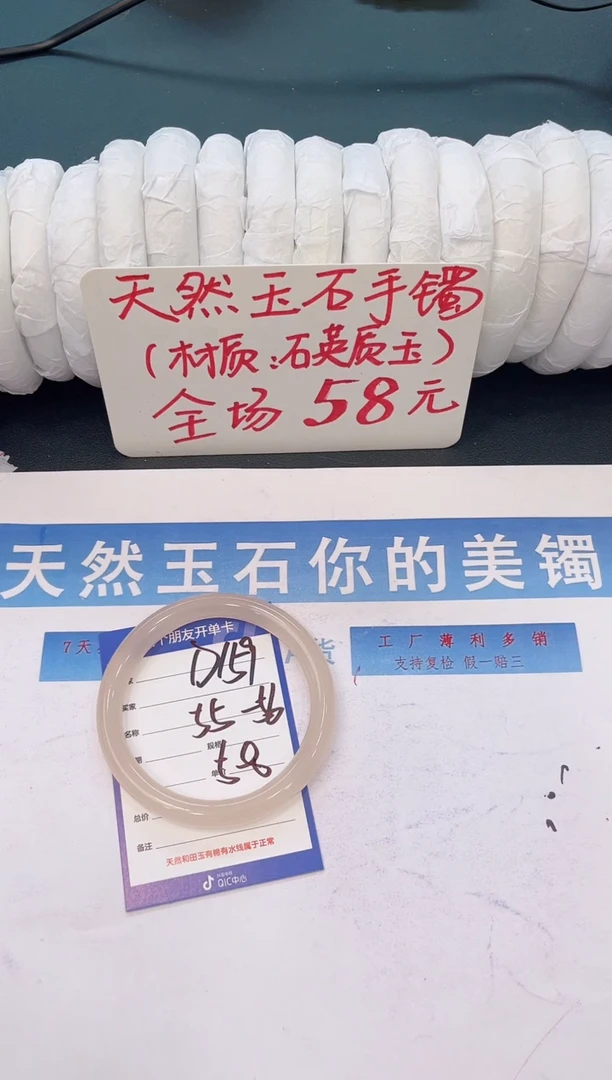 天然玉石手镯
（材质：石英质玉）
全场 58 元
天然玉石你的美镯
7天
个朋友开单卡
货
工厂薄利多销
支持复检 假一赔三
D159
买家
55-56
名称
规格
58
单
总价
备注
天然和田玉有棉有水线属于正常
QIC中心